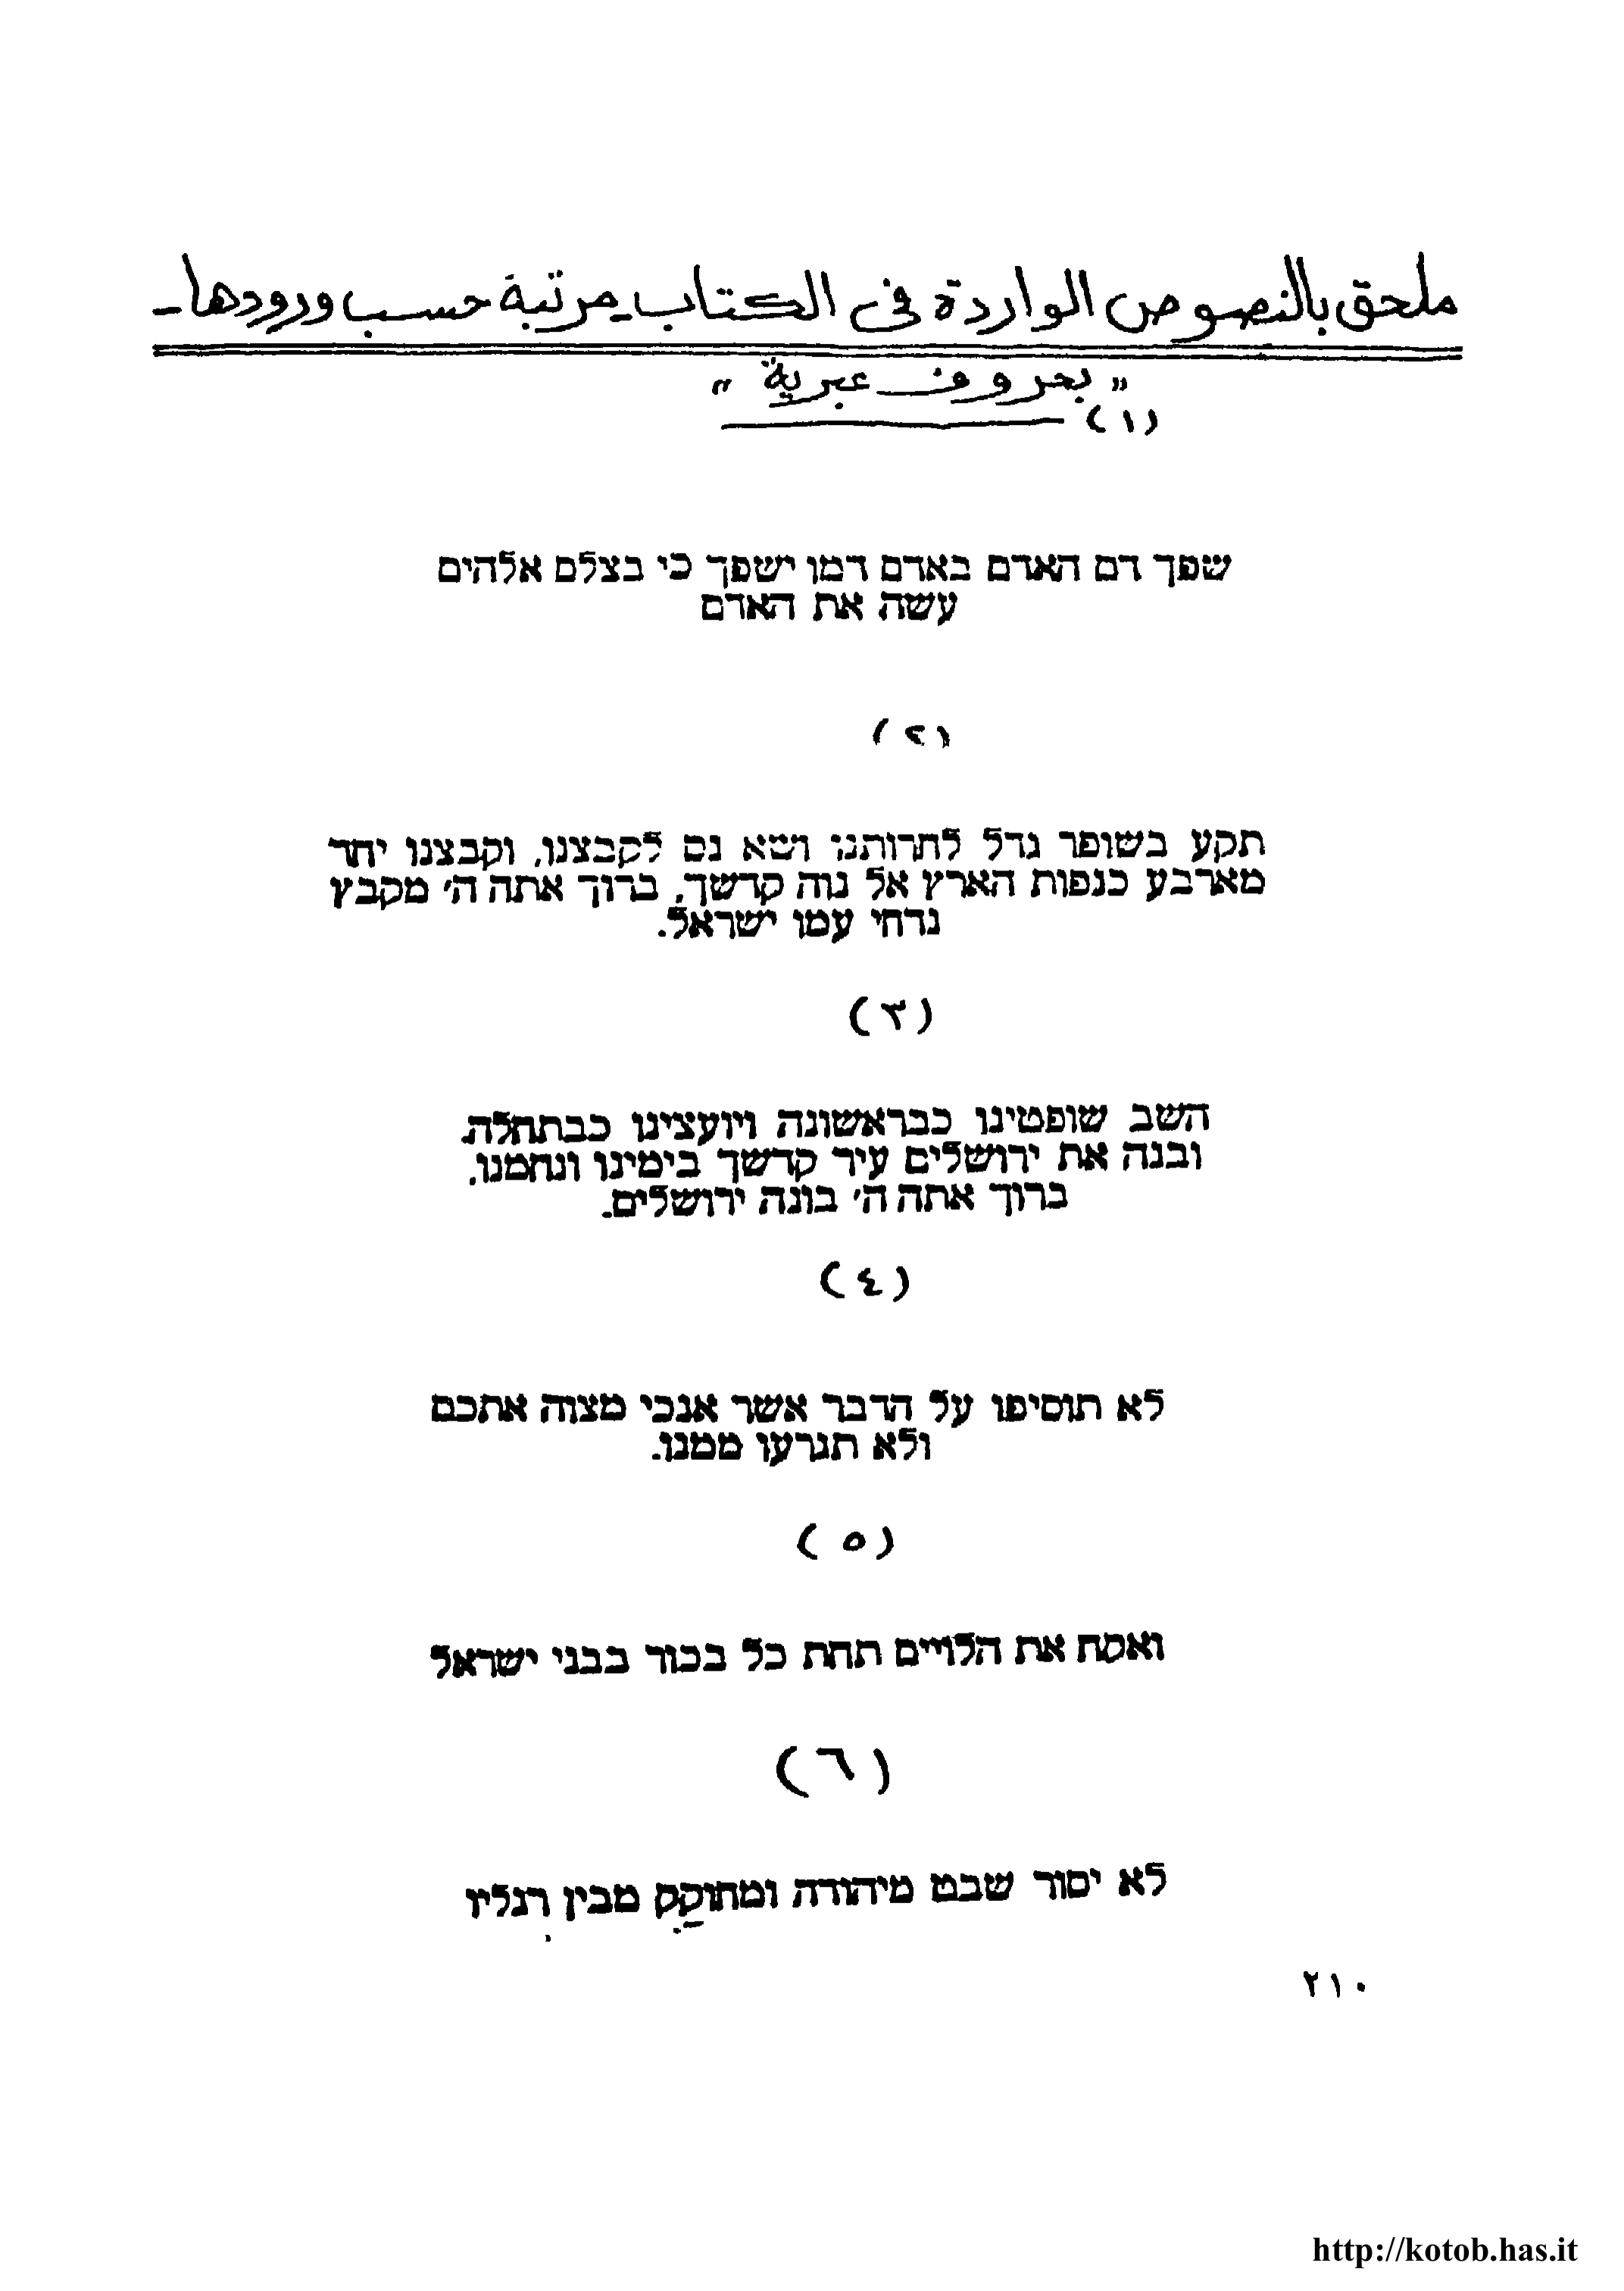 ملحق بالنصوص الواردة فى الكتاب مرتبة حسب ورودها -
" بحروف عبرية "
(١)
שפך דם האדם באדם דמו ישפך כי בצלם אלהים
עשה את האדם
(٢)
תקע בשופר גדל לחרותנו ושא נס לקבצנו, וקבצנו יחד
מארבע כנפות הארץ אל נוה קדשך, ברוך אתה ה' מקבץ
נדחי עמו ישראל.
(٣)
השב שופטינו כבראשונה ויועצינו כבתחלה.
ובנה את ירושלים עיר קדשך בימינו ונחמנו,
ברוך אתה ה' בונה ירושלים.
(٤)
לא תוסיפו על הדבר אשר אנכי מצוה אתכם
ולא תגרעו ממנו.
(٥)
ואקח את הלויים תחת כל בכור בבני ישראל
(٦)
לא יסור שבט מיהודה ומחוקק מבין רגליו
٢١٠
http://kotob.has.it